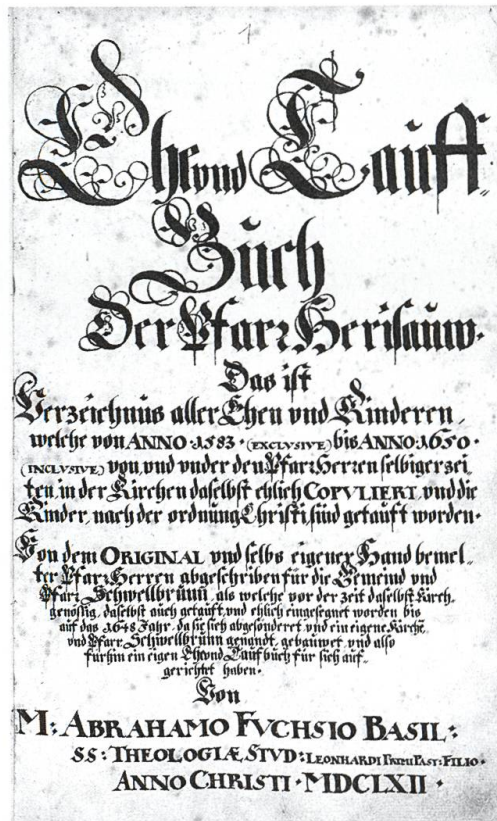 1
Ehe vnd Tauff⸗
Buch
Der Pfarr Herisauw.
Das ist
Verzeichnus aller Ehen vnd Kinderen,
welche von ANNO 1583 (EXCLVSIVE) bis ANNO 1650.
(INCLVSIVE) von, vnd vnder den Pfarr Herren selbiger zei⸗
ten, in der Kirchen daselbst ehlich COPVLIERT, vnd die
Kinder, nach der ordnung Christi sind getaufft worden.
Von dem ORIGINAL vnd selbs eigener Hand bemel⸗
ter Pfarr Herren abgeschriben für die Gemeind vnd
Pfarr Schwellbrunn, als welche vor der zeit daselbst Kirch⸗
genössig, daselbst auch getaufft, vnd ehlich eingesegnet worden bis
auf das 1648 Jahr, da sie sich abgesönderet, vnd ein eigene Kirche,
vnd Pfarr Schwellbrunn genandt, gebauwet, vnd also
fürhin ein eigen Ehe vnd Tauf buch für sich auf⸗
gerichtet haben.
Von
M: ABRAHAMO FVCHSIO BASIL:
SS: THEOLOGIÆ STVD: LEONHARDI PAST: FILIO.
ANNO CHRISTI · MDCLXII ·